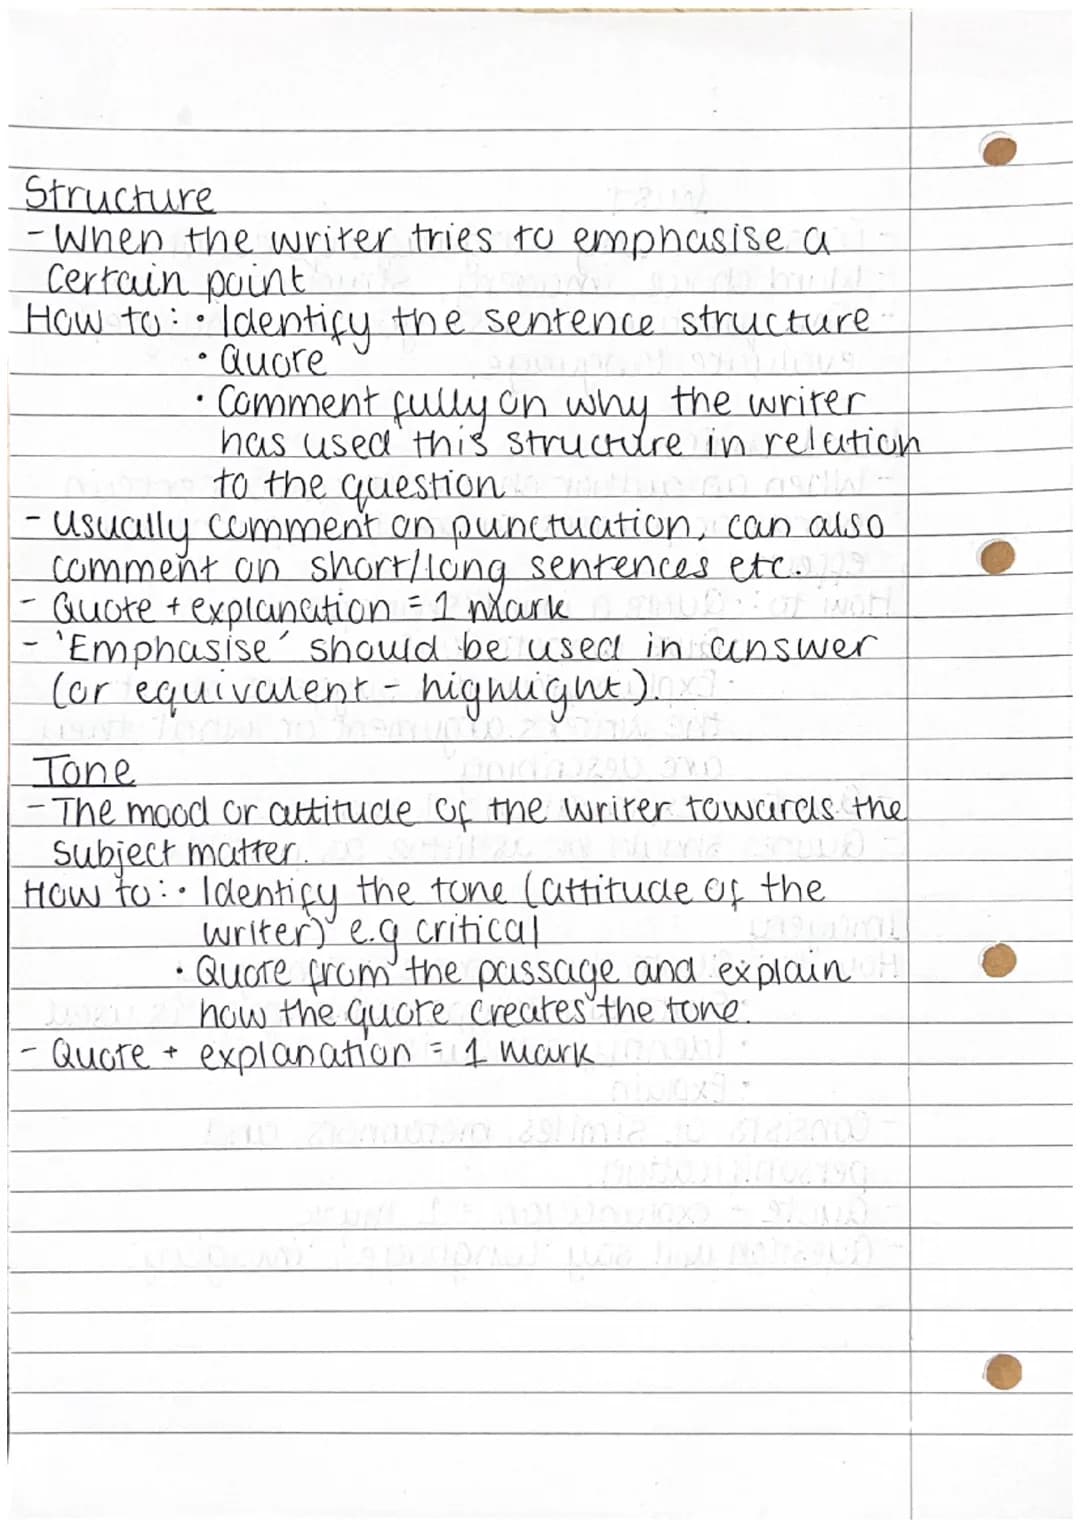 Structure
- When the writer tries to emphasise a
certain point
How to: • Identify the sentence structure
• Quote
• Comment fully on why the writer
has used this structure in relation
to the question
- Usually comment on punctuation, can also
comment on short/long sentences etc.
- Quote + explanation = 1 mark
- 'Emphasise' should be used in answer
(or equivalent - highlight).
Tone
- The mood or attitude of the writer towards the
subject matter.
How to: • Identify the tone (attitude of the
writer) e.g critical
• Quote from the passage and explain
how the quote creates the tone.
- Quote + explanation = 1 mark